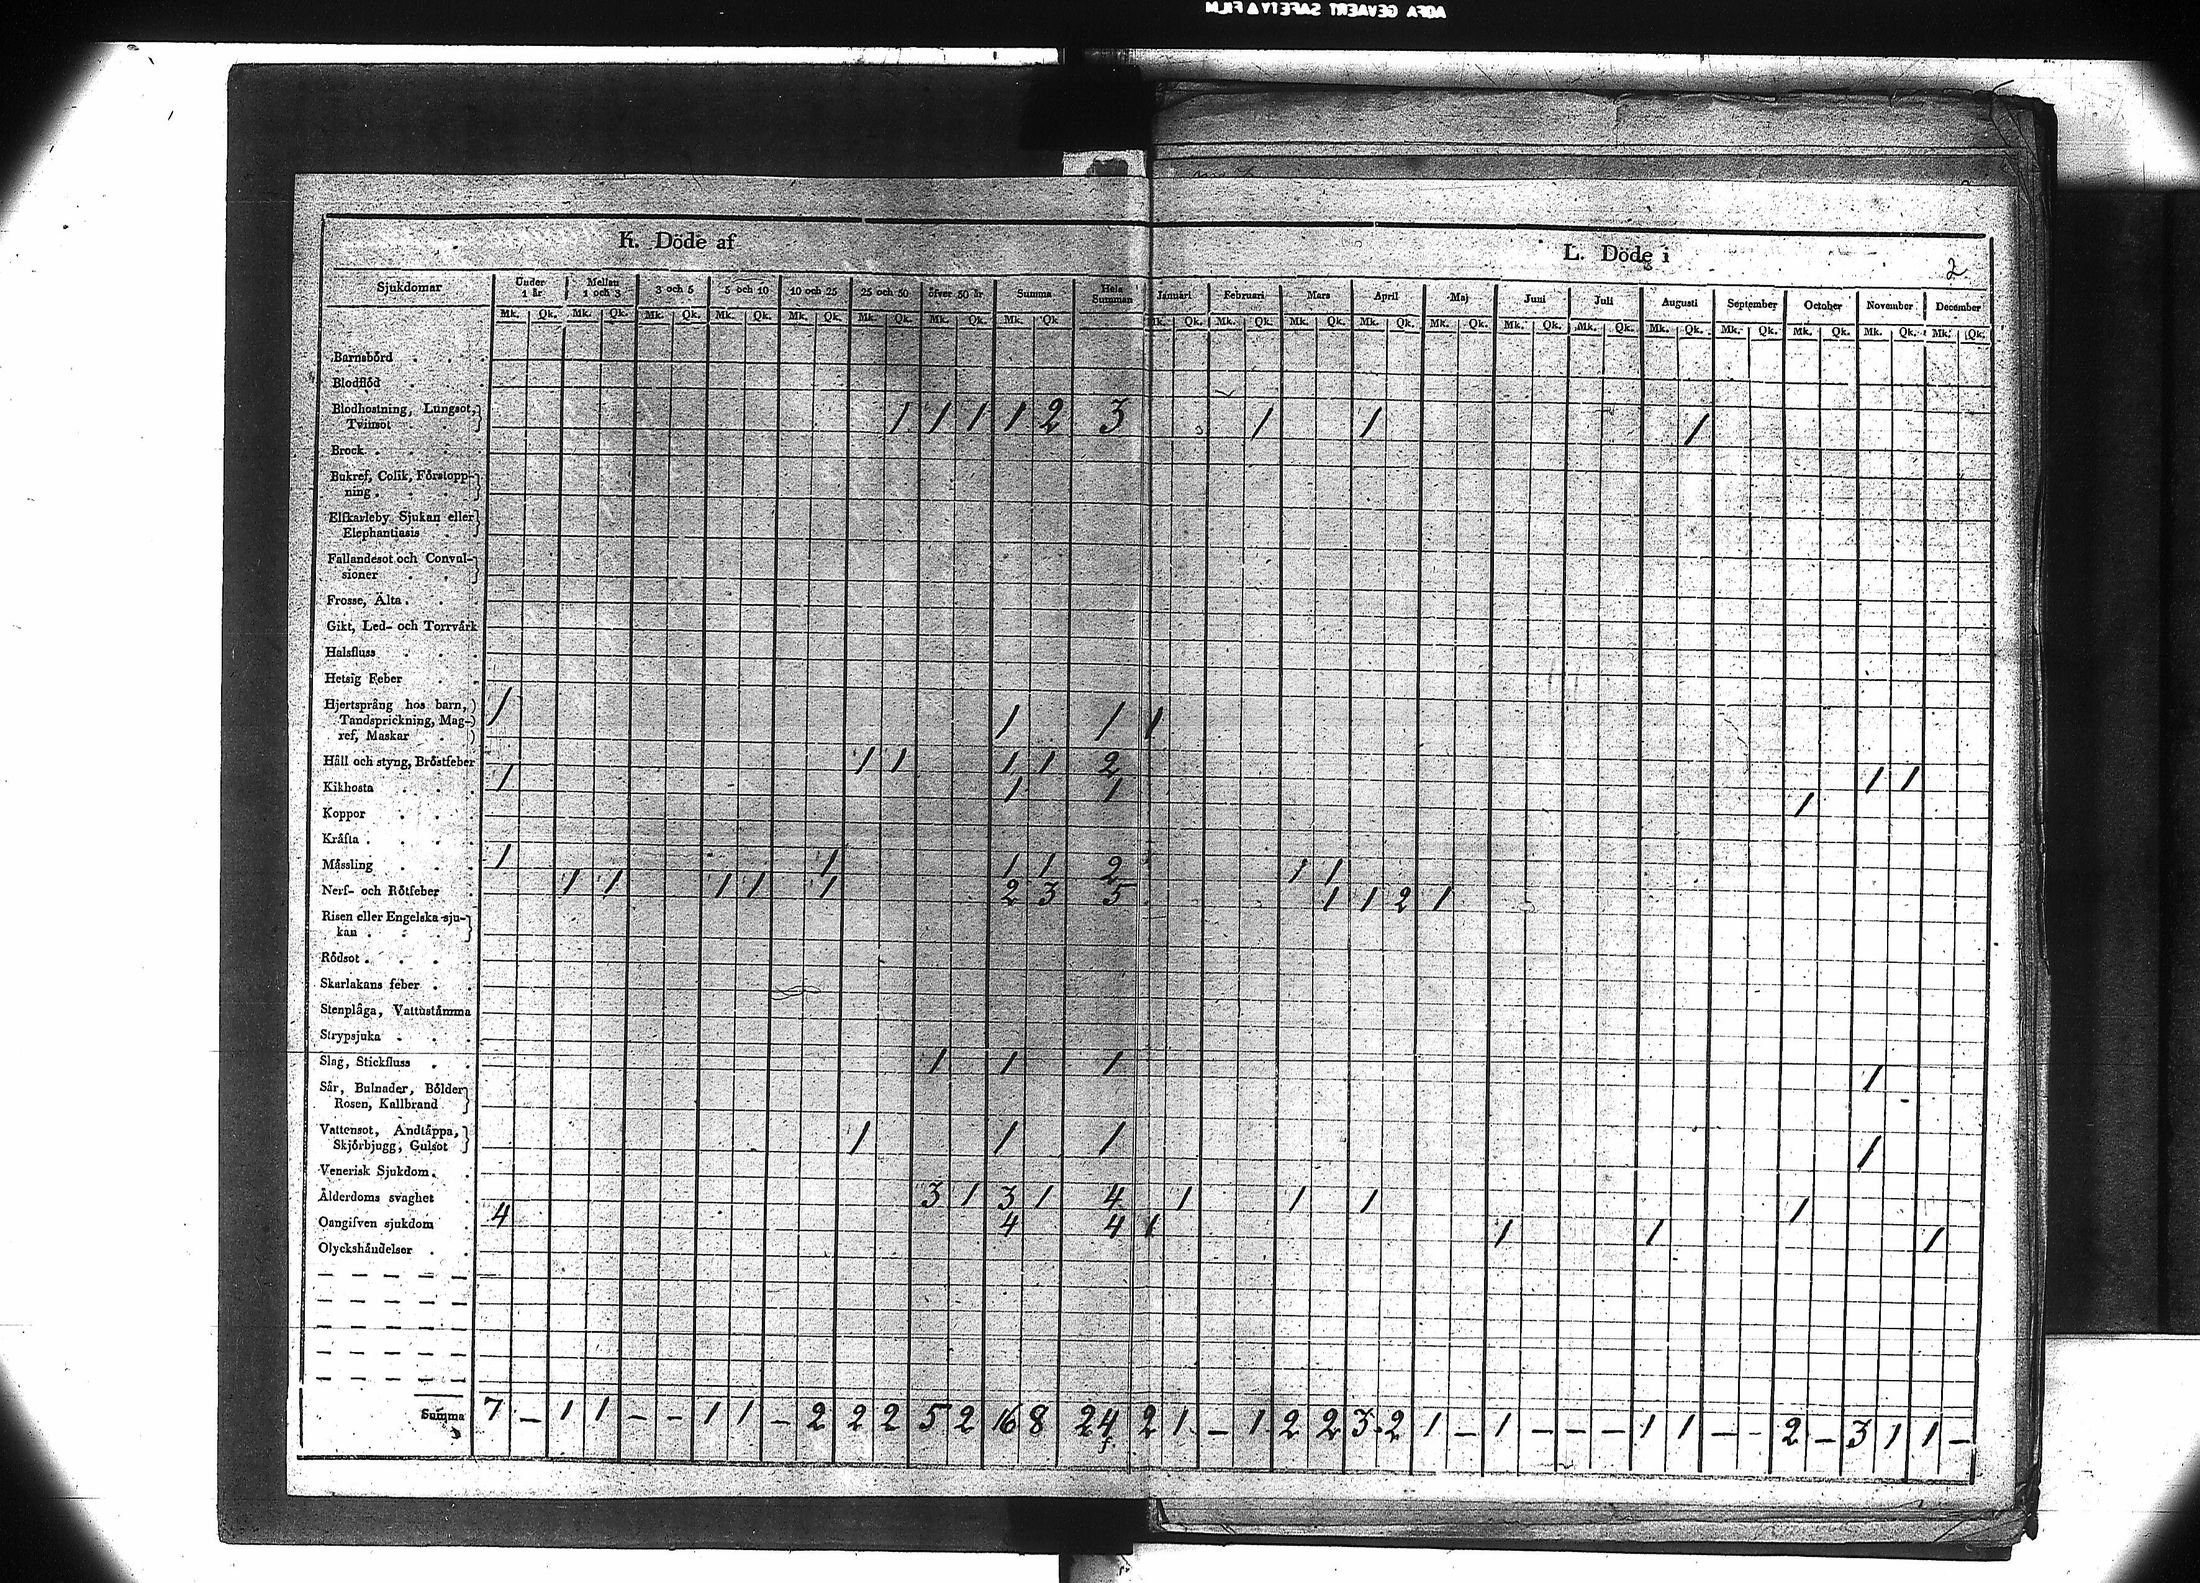 AGFA GEVAERT SAFETY FILM
K. Döde af
L. Döde i
2
Sjukdomar Under 1 år Mellan 1 och 3 3 och 5 5 och 10 10 och 25 25 och 50 öfver 50 år Summa Hela Summan Januari Februari Mars April Maj Juni Juli Augusti September October November December
Mk. Qk. Mk. Qk. Mk. Qk. Mk. Qk. Mk. Qk. Mk. Qk. Mk. Qk. Mk. Qk Mk. Qk. Mk. Qk. Mk. Qk. Mk. Qk. Mk. Qk. Mk. Qk. Mk. Qk. Mk. Qk. Mk. Qk. Mk. Qk. Mk. Qk. Mk. Qk.
Barnsbörd . . .
Blodflöd . . .
Blodhostning, Lungsot,
Tvinsot . . 1 1 1 1 2 3 1 1 1
Brock . . . .
Bukref, Colik, Förstopp-
ning . . .
Elfkarleby Sjukan eller
Elephantiasis .
Fallandesot och Convul-
sioner . . .
Frosse, Älta . . .
Gikt, Led- och Torrvärk
Halsfluss . . .
Hetsig Feber . .
Hjertsprång hos barn,
Tandsprickning, Mag-
ref, Maskar . 1 1 1 1
Håll och styng, Bröstfeber 1 1 1 1 2 1 1
Kikhosta . . . 1 1 1 1
Koppor . . .
Kräfta . . . .
Mässling . . . 1 1 1 1 2 1 1
Nerf- och Rötfeber . 1 1 1 1 1 2 3 5 1 1 2 1
Risen eller Engelska sju-
kan . . .
Rödsot . . . .
Skarlakans feber . .
Stenplåga, Vattustämma
Strypsjuka . . .
Slag, Stickfluss . . 1 1 1 1
Sår, Bulnader, Bölder
Rosen, Kallbrand
Vattensot, Andtäppa,
Skjörbjugg, Gulsot 1 1 1 1
Venerisk Sjukdom . .
Ålderdoms svaghet . 3 1 3 1 4 1 1 1 1
Oangifven sjukdom . 4 4 4 1 1 1 1
Olyckshändelser . .
— — — — —
— — — — —
— — — — —
— — — — —
— — — — —
Summa 7 – 1 1 – – 1 1 – 2 2 2 5 2 16 8 24 2 1 – 1 2 2 3 2 1 – 1 – – – 1 1 – – 2 – 3 1 1 –